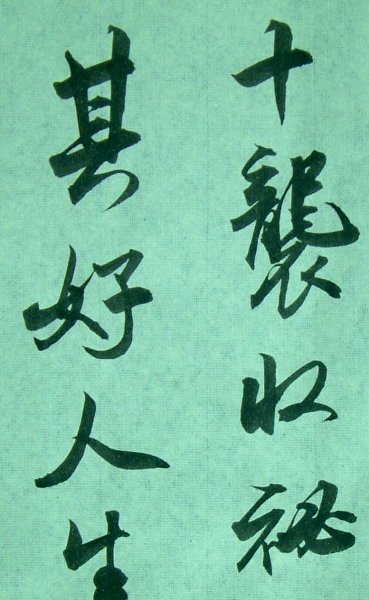 十襲收祕
其好人生